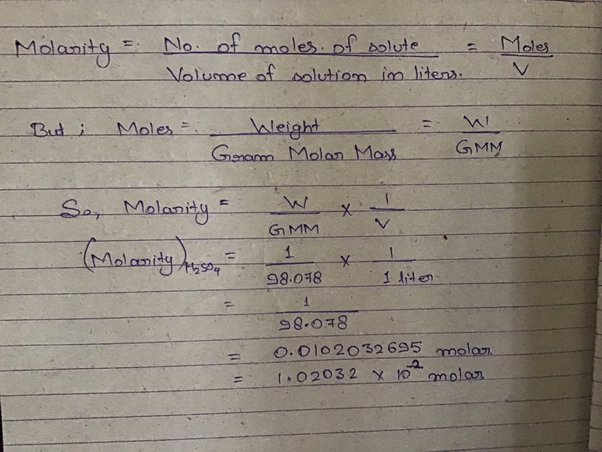 Molarity = No. of moles. of solute / Volume of solution in liters. = Moles / V
But ; Moles = Weight / Gram Molar Mass = W / GMM
So, Molarity = W / GMM × 1 / V
(Molarity)H₂SO₄ = 1 / 98.078 × 1 / 1 liter
= 1 / 98.078
= 0.0102032695 molar
= 1.02032 × 10⁻² molar